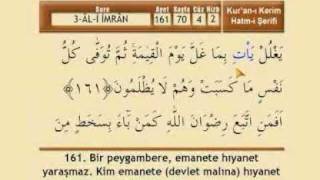 Sure Ayet Sayfa Cüz Hizb
3-ÂL-İ İMRÂN 161 70 4 2
Kur'an-ı Kerim
Hatm-i Şerifi
يَغْلُلْ يَأْتِ بِمَا غَلَّ يَوْمَ الْقِيٰمَةِ ثُمَّ تُوَفّٰى كُلُّ
نَفْسٍ مَا كَسَبَتْ وَهُمْ لَا يُظْلَمُونَ ﴿١٦١﴾
اَفَمَنِ اتَّبَعَ رِضْوَانَ اللّٰهِ كَمَنْ بَٓاءَ بِسَخَطٍ مِنَ
161. Bir peygambere, emanete hıyanet
yaraşmaz. Kim emanete (devlet malına) hıyanet